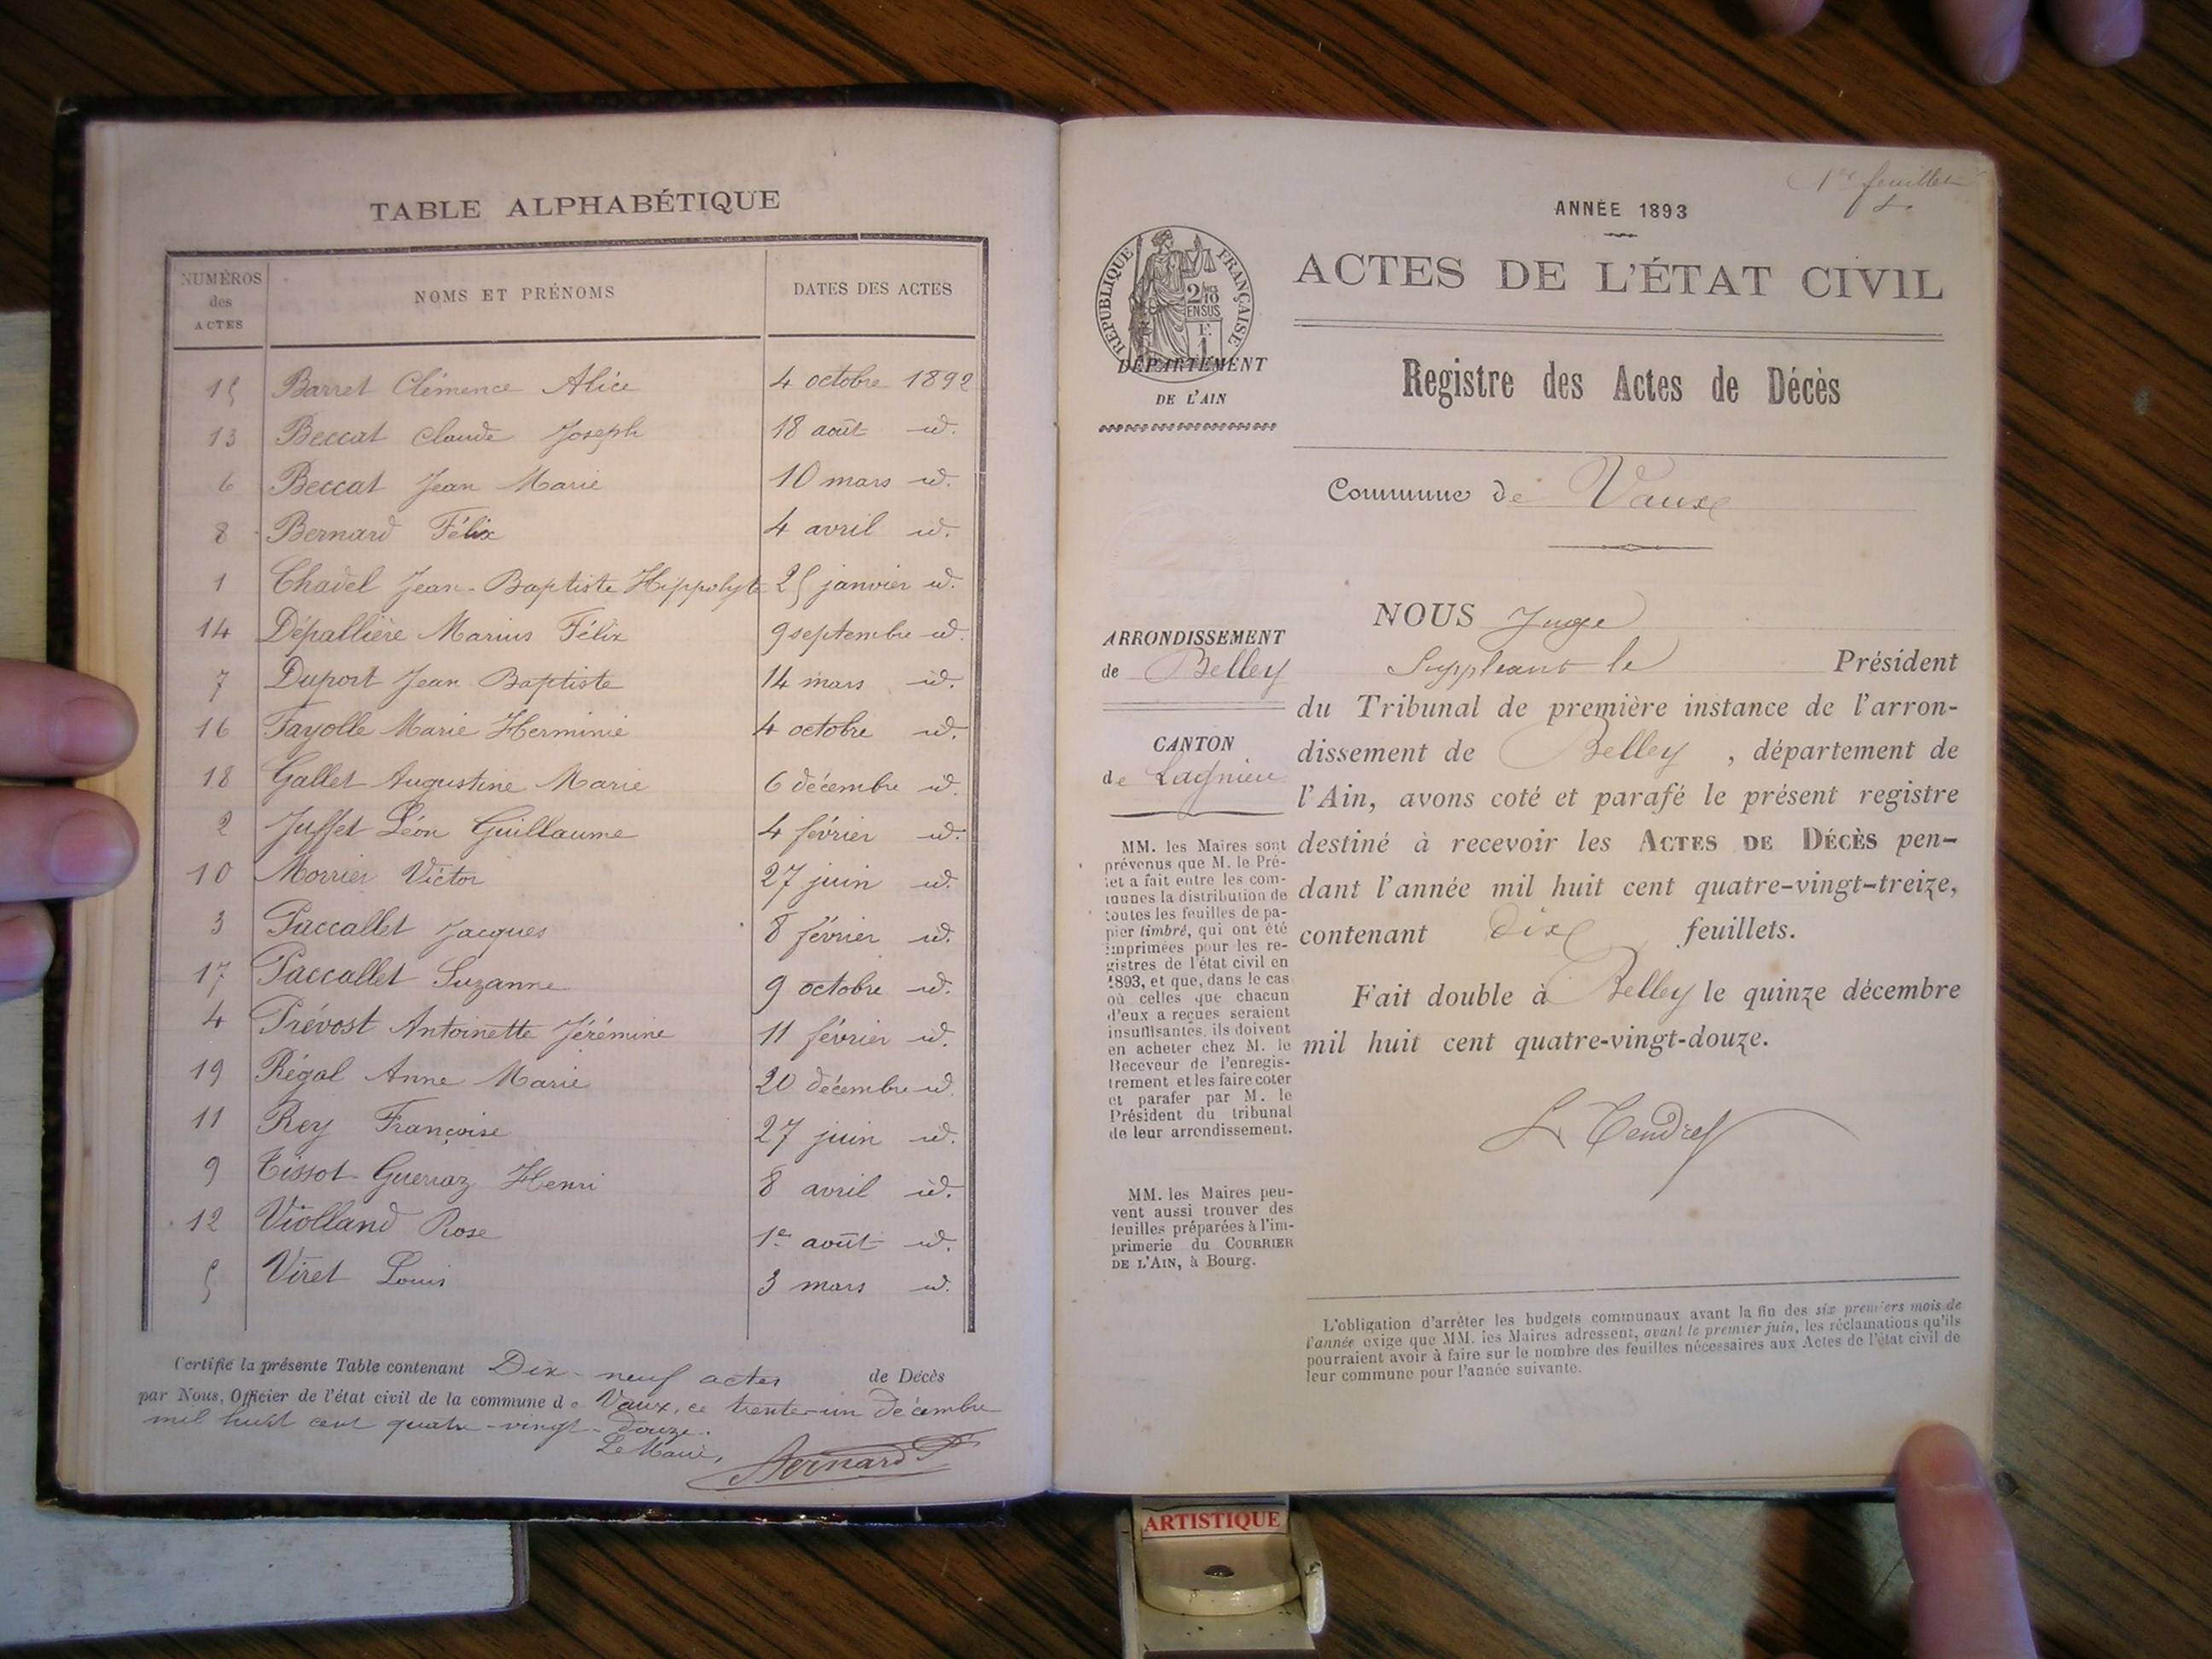 TABLE ALPHABÉTIQUE
NUMÉROS des ACTES NOMS ET PRÉNOMS DATES DES ACTES
15 Barret Clémence Alice 4 octobre 1892
13 Beccat Claude Joseph 18 août id.
6 Beccat Jean Marie 10 mars id.
8 Bernard Félix 4 avril id.
1 Chavel Jean-Baptiste Hippolyte 25 janvier id.
14 Dépallière Marius Félix 9 septembre id.
7 Duport Jean Baptiste 14 mars id.
16 Fayolle Marie Herminie 4 octobre id.
18 Gallet Augustine Marie 6 décembre id.
2 Juffet Léon Guillaume 4 février id.
10 Morrier Victor 27 juin id.
3 Paccallet Jacques 8 février id.
17 Paccallet Suzanne 9 octobre id.
4 Prévost Antoinette Jérémine 11 février id.
19 Régal Anne Marie 20 décembre id.
11 Rey Françoise 27 juin id.
9 Tissot-Guerraz Henri 8 avril id.
12 Violland Rose 1er août id.
5 Viret Louis 3 mars id.
Certifié la présente Table contenant Dix-neuf actes de Décès
par Nous, Officier de l'état civil de la commune de Vaux, ce trente-un décembre
mil huit cent quatre-vingt-douze.
Le Maire,
Bernard F
1er feuillet
ANNÉE 1893
ACTES DE L'ÉTAT CIVIL
RÉPUBLIQUE FRANÇAISE
2/10 EN SUS
DÉPARTEMENT
DE L'AIN
Registre des Actes de Décès
Commune de Vaux
ARRONDISSEMENT
de Belley
CANTON
de Lagnieu
MM. les Maires sont
prévenus que M. le Pré-
fet a fait entre les com-
munes la distribution de
toutes les feuilles de pa-
pier timbré, qui ont été
imprimées pour les re-
gistres de l'état civil en
1893, et que, dans le cas
où celles que chacun
d'eux a reçues seraient
insuffisantes, ils doivent
en acheter chez M. le
Receveur de l'enregis-
trement et les faire coter
et parafer par M. le
Président du tribunal
de leur arrondissement.
MM. les Maires peu-
vent aussi trouver des
feuilles préparées à l'im-
primerie du COURRIER
DE L'AIN, à Bourg.
NOUS Juge
Suppléant le Président
du Tribunal de première instance de l'arron-
dissement de Belley, département de
l'Ain, avons coté et parafé le présent registre
destiné à recevoir les ACTES DE DÉCÈS pen-
dant l'année mil huit cent quatre-vingt-treize,
contenant dix feuillets.
Fait double à Belley le quinze décembre
mil huit cent quatre-vingt-douze.
L'obligation d'arrêter les budgets communaux avant la fin des six premiers mois de
l'année exige que MM. les Maires adressent, avant le premier juin, les réclamations qu'ils
pourraient avoir à faire sur le nombre des feuilles nécessaires aux Actes de l'état civil de
leur commune pour l'année suivante.
ARTISTIQUE